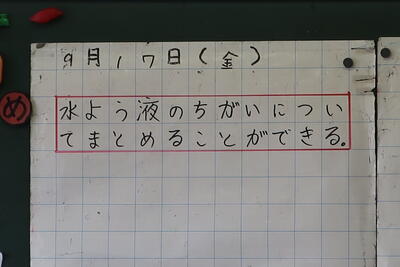 9月17日(金)
水よう液のちがいについ
てまとめることができる。
め